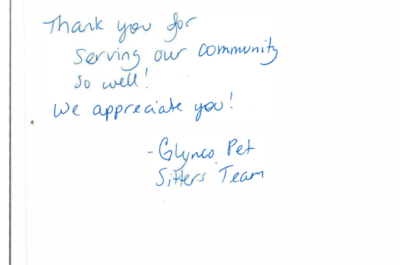 Thank you for
serving our community
so well!
We appreciate you!
- Glynco Pet
Sitters Team